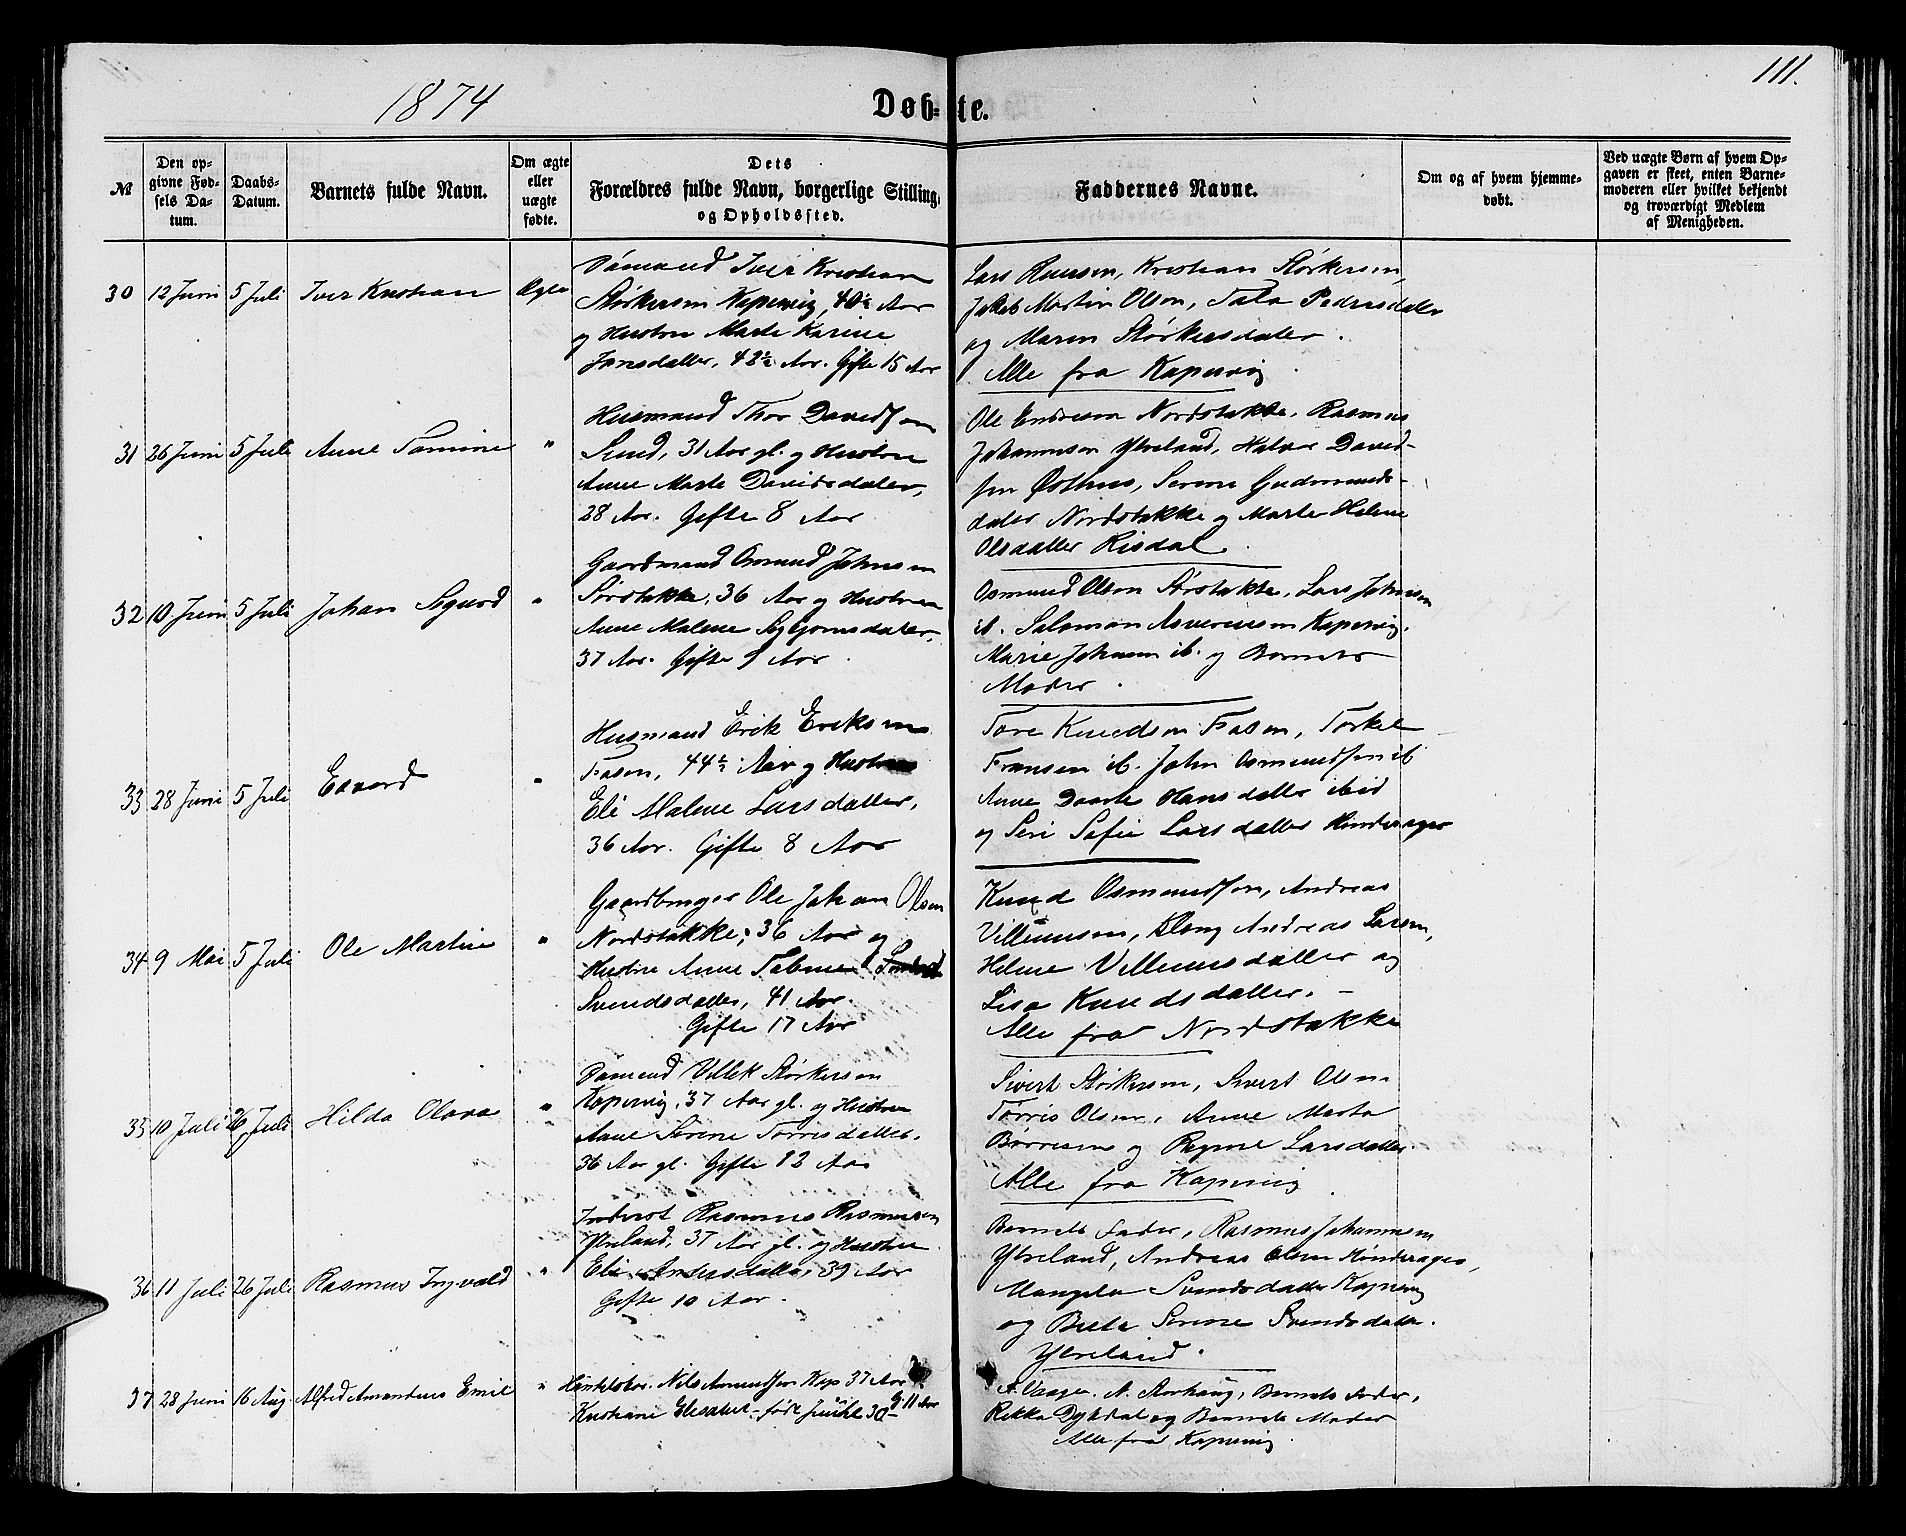 1874
Døbte.
111.
№
Den opgivne Fødsels Datum.
Daabs-Datum.
Barnets fulde Navn.
Om ægte eller uægte fødte.
Dets Forældres fulde Navn, borgerlige Stilling og Opholdssted.
Faddernes Navne.
Om og af hvem hjemmedøbt.
Ved uægte Børn af hvem Opgaven er skeet, enten Barnemoderen eller hvilket bekjendt og troværdigt Medlem af Menigheden.
30 12 Juni 5 Juli Iver Kristian Ægte
Iver Kristian
Størkersen Kopervig, 40½ Aar
og Hustru Marte Karine
Jonsdatter, 42½ Aar. Gifte 15 Aar
Lars Kristian Størkersen,
Jakob Martin Olson, Pedersdatter
og Maren Størkersdatter.
Alle fra Kopervig
31 26 Juni 5 Juli Anne Tomine "
Husmand Thor Davidsson
Sund, 31 Aar gl. og Hustru
Anne Marte Davidsdater,
28 Aar. Gifte 8 Aar
Ole Endresen Nordstokke, Rasmus
Johannesen Ytreland, Halvor David-
sen Østhus, Serine Gudmunds-
dater Nordstokke og Marte Helene
Olsdatter Risdal.
32 10 Juni 5 Juli Johan Sigurd "
Gaardmand Osmund Johnsen
Sørstokke, 36 Aar og Hustru
Anne Malene
37 Aar. Gifte 9 Aar.
Osmund Olson Sørstokke, Lars Johnsen
ib. Salomon Kopervig.
Marie Johnsen ib. og Barnets
Moder.
33 28 Juni 5 Juli Edvard "
Husmand Erik Eriksen
Fosen, 44½ Aar og Hustru
Eli Malene Larsdatter,
36 Aar. Gifte 8 Aar
Tore Knudson Fosen, Torkel
Fransen ib. John Osmundsen ib
Anne Dorte Hansdatter ibid
og Seri Sofie Larsdatter
34 9 Mai 5 Juli Ole Martin "
Gaardbruger Ole Johan Olsen
Nordstokke, 36 Aar og
Hustru Anne
Svendsdatter, 41 Aar.
Gifte 17 Aar
Knud Osmundsen, Andreas
Villumsen, Andreas Larsen,
Helene Villumsdatter og
Lisa Knudsdatter. –
Alle fra Nordstokke
35 10 Juli 26 Juli Hilda Olava "
Villik Størkersen
Kopervig, 37 Aar gl. og Hustru
Anne Serene Torrisdatter.
36 Aar gl. Gifte 12 Aar
Sivert Størkersen, Sivert Olsen
Torris Olsen, Anne Marta
Børresen og Regine Larsdatter.
Alle fra Kopervig
36 11 Juli 26 Juli Rasmus Ingvald "
Inderst Rasmus Rasmussen
Ytreland, 37 Aar gl. og Hustru
Eli Andersdatter, 39 Aar
Gifte 10 Aar.
Barnets Fader, Rasmus Johannesen
Ytreland, Andreas Olsen
Svendsdatter Kopervig
og Berte Serine Svendsdatter.
Ytreland.
37 28 Juni 16 Aug. Alfred Amandus Emil "
Nils Kop 37 Aar
Kristiane Elisabet født Juuhl 30 – G. 11 Aar
A. Vaage. N. Storhaug, Barnets Fader,
Rikka Dybdal og Barnets Moder
Alle fra Kopervig.